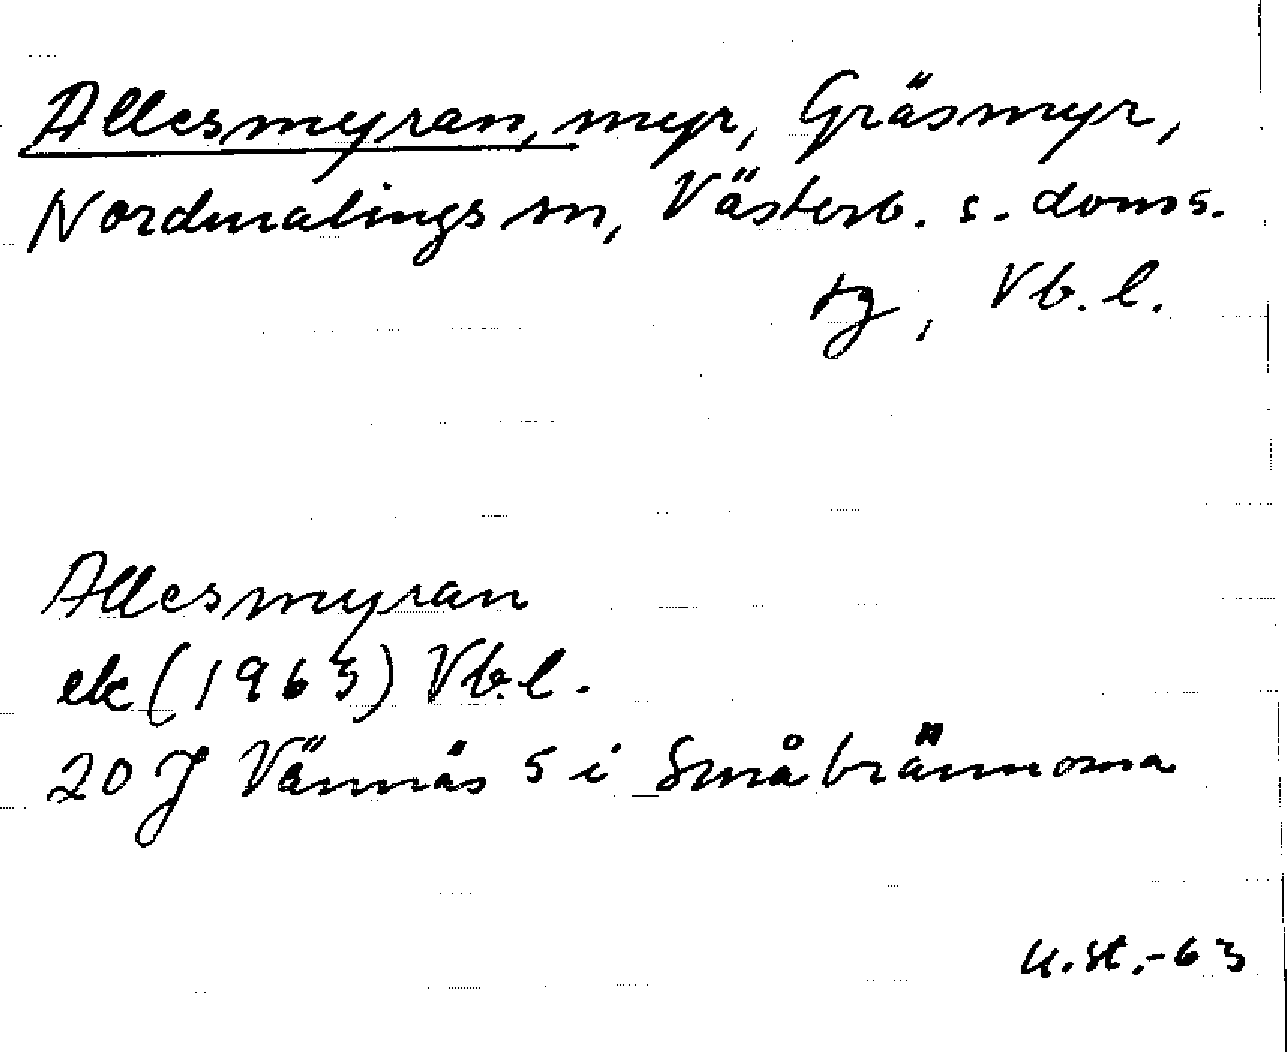 Allesmyran, myr, Gräsmyr,
Nordmalings sn, Västerb. s. doms.
tg, Vb. l.
Allesmyran
ek (1963) Vb. l.
20 J Vännäs 5 i Småbrännorna
U. St. -63